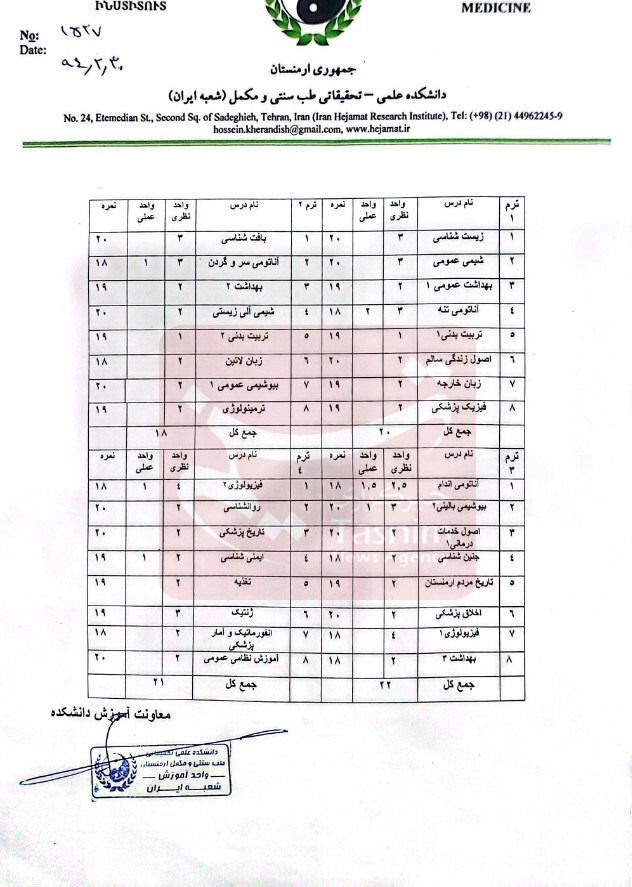 ԻՆՍՏԻՏՈՒՏ
MEDICINE
No: ۱۵۲۷
Date: ۹۴,۲,۳۰
جمهوری ارمنستان
دانشکده علمی – تحقیقاتی طب سنتی و مکمل (شعبه ایران)
No. 24, Etemedian St., Second Sq. of Sadeghieh, Tehran, Iran (Iran Hejamat Research Institute), Tel: (+98) (21) 44962245-9
hossein.kherandish@gmail.com, www.hejamat.ir
ترم ۱ نام درس واحد نظری واحد عملی نمره ترم ۲ نام درس واحد نظری واحد عملی نمره
۱ زیست شناسی ۳ ۲۰ ۱ بافت شناسی ۳ ۲۰
۲ شیمی عمومی ۳ ۲۰ ۲ آناتومی سر و گردن ۳ ۱ ۱۸
۳ بهداشت عمومی ۱ ۲ ۱۹ ۳ بهداشت ۲ ۲ ۱۹
۴ آناتومی تنه ۳ ۲ ۱۸ ۴ شیمی آلی زیستی ۲ ۲۰
۵ تربیت بدنی۱ ۱ ۱۹ ۵ تربیت بدنی ۲ ۱ ۱۹
۶ اصول زندگی سالم ۲ ۲۰ ۶ زبان لاتین ۲ ۱۸
۷ زبان خارجه ۲ ۱۹ ۷ بیوشیمی عمومی ۱ ۲ ۲۰
۸ فیزیک پزشکی ۲ ۱۹ ۸ ترمینولوژی ۲ ۱۹
جمع کل ۲۰ جمع کل ۱۸
ترم ۳ نام درس واحد نظری واحد عملی نمره ترم ۴ نام درس واحد نظری واحد عملی نمره
۱ آناتومی اندام ۲,۵ ۱,۵ ۱۸ ۱ فیزیولوژی۲ ۴ ۱ ۱۸
۲ بیوشیمی بالینی۲ ۳ ۱ ۲۰ ۲ روانشناسی ۲ ۲۰
۳ اصول خدمات درمانی۱ ۲۰ ۳ تاریخ پزشکی ۲ ۲۰
۴ جنین شناسی ۲ ۱۸ ۴ ایمنی شناسی ۲ ۱ ۱۹
۵ تاریخ مردم ارمنستان ۲ ۱۹ ۵ تغذیه ۲ ۱۹
۶ اخلاق پزشکی ۲ ۲۰ ۶ ژنتیک ۳ ۱۹
۷ فیزیولوژی۱ ۴ ۱۸ ۷ انفورماتیک و آمار پزشکی ۲ ۱۸
۸ بهداشت ۳ ۲ ۱۸ ۸ آموزش نظامی عمومی ۲ ۲۰
جمع کل ۲۲ جمع کل ۲۱
خبرگزاری
Tasnim
News Agency
معاونت آموزش دانشکده
دانشکده علمی تحقیقاتی
طب سنتی و مکمل ارمنستان
واحد آموزش
شعبه ایران